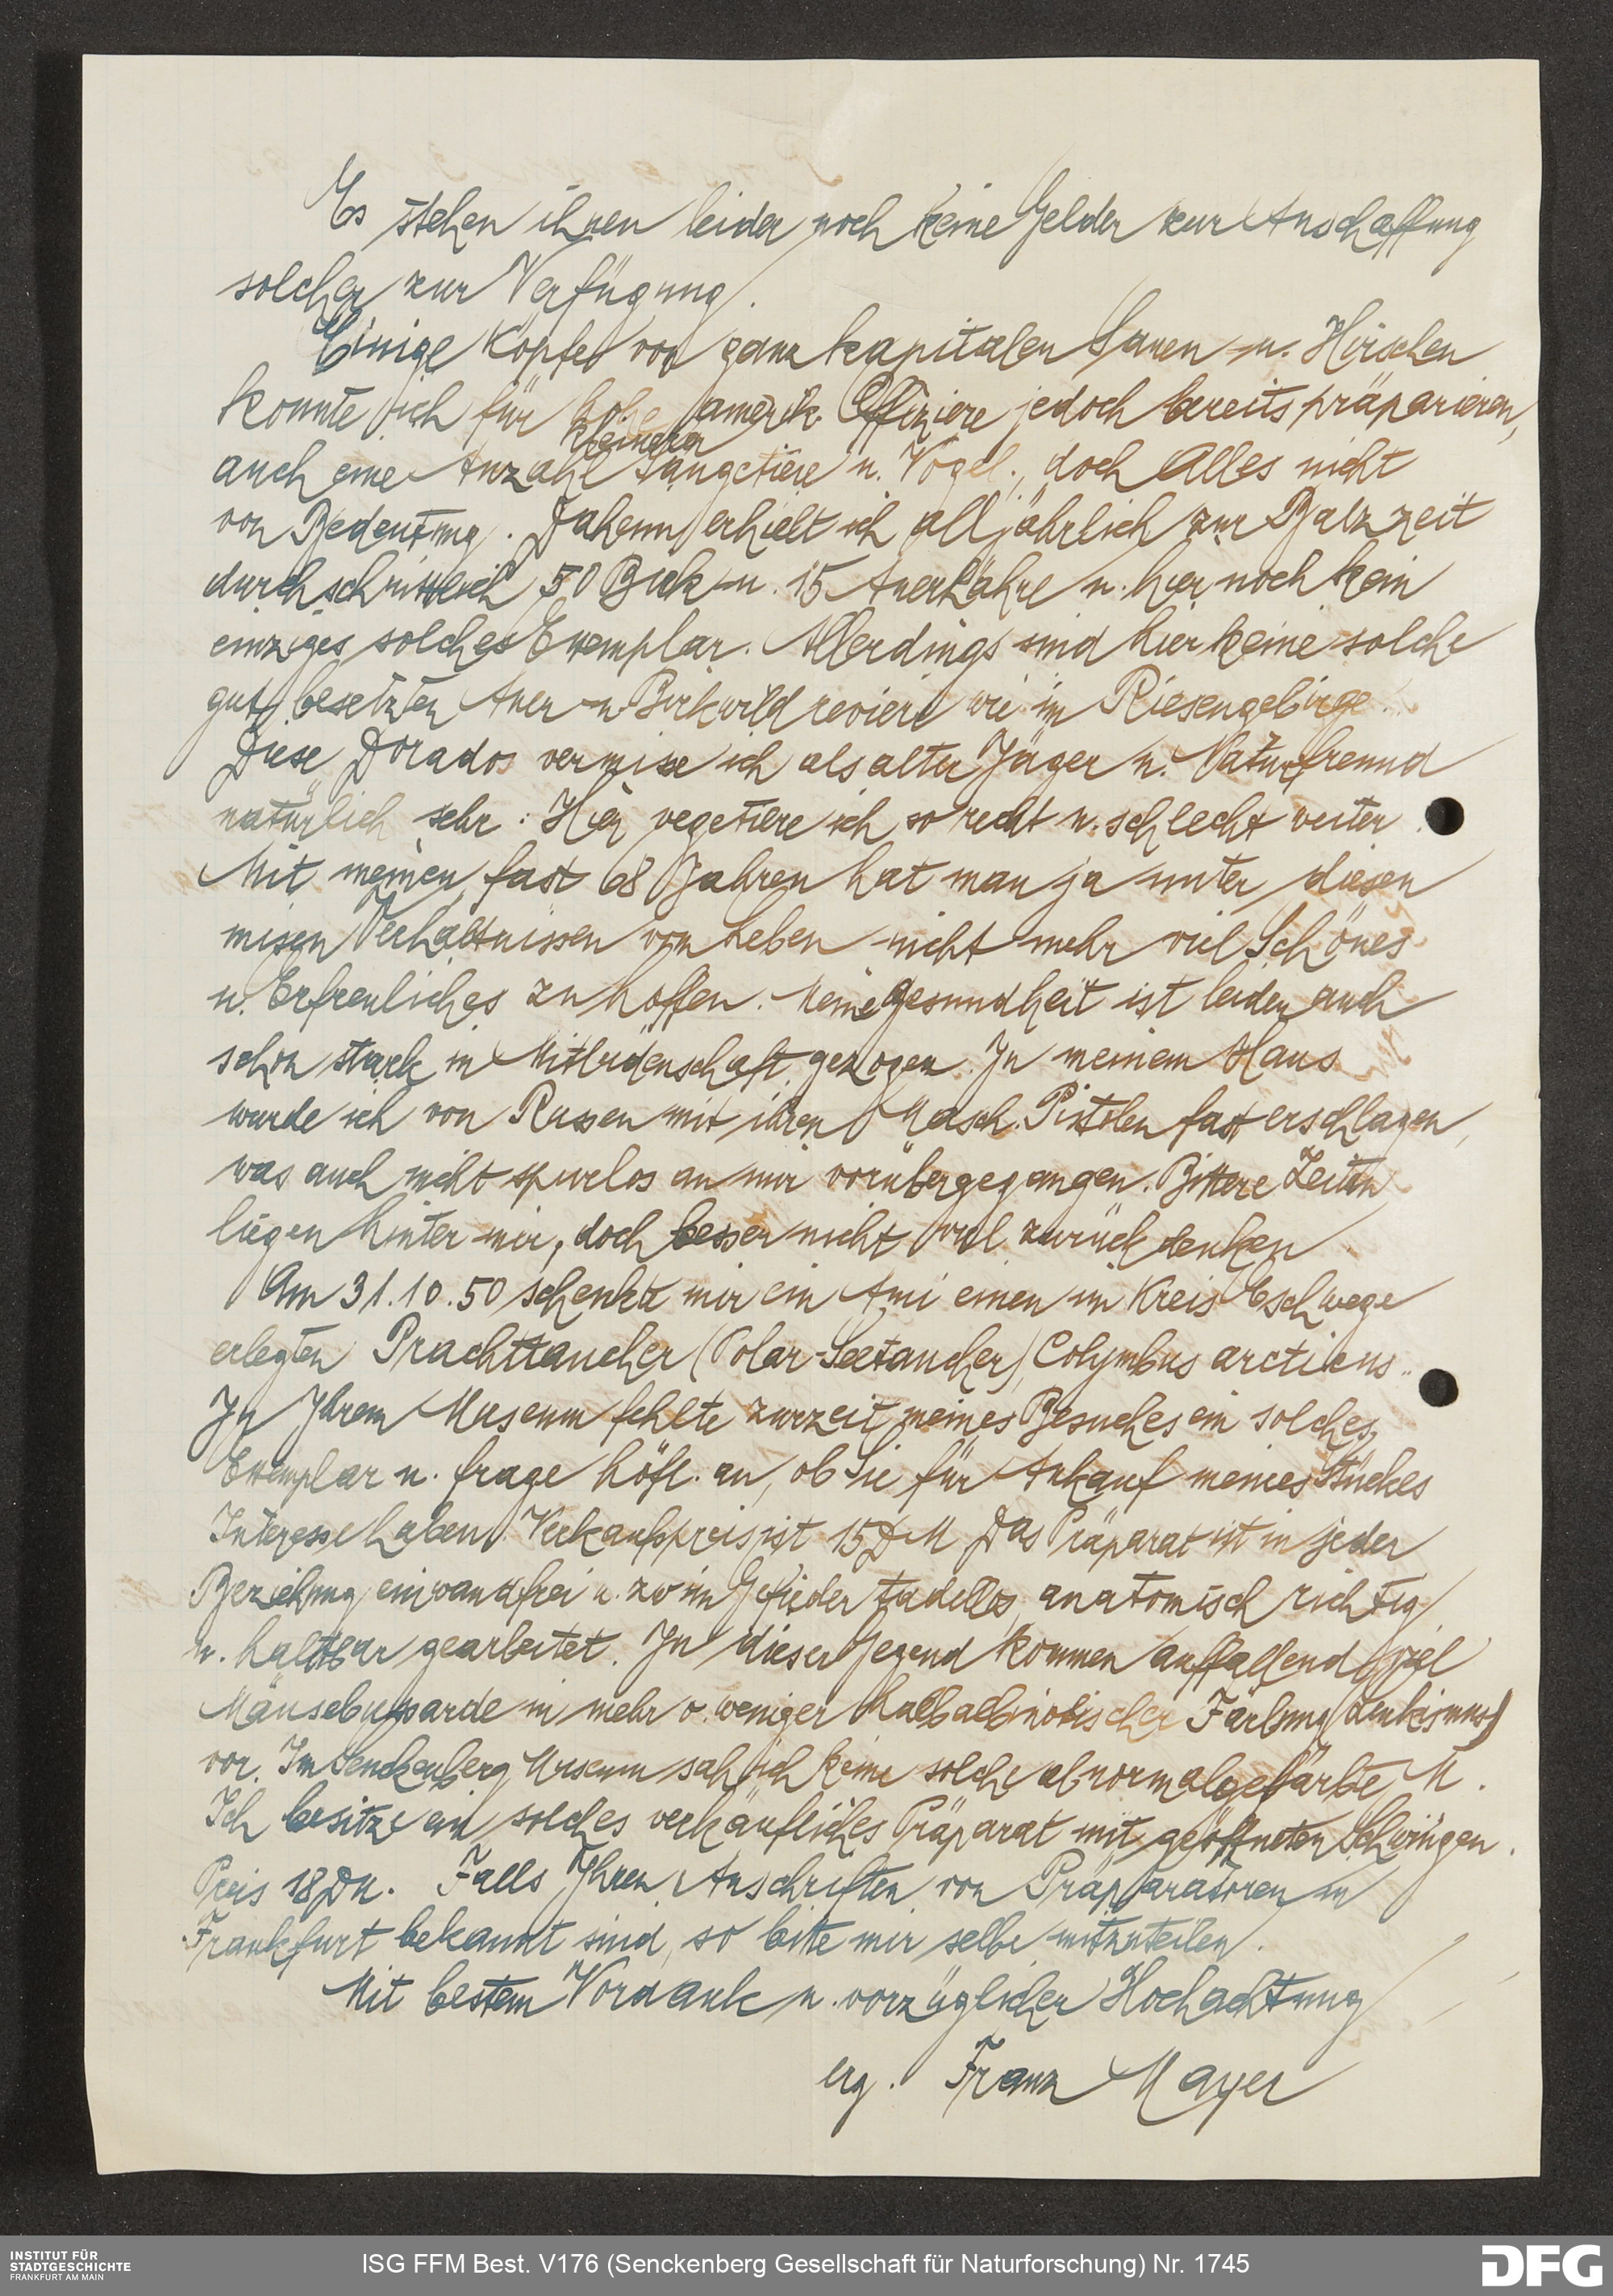 Es stehen ihnen leider noch keine Gelder zur Anschaffung
solcher zur Verfügung.
Einige Köpfe von ganz kapitalen Sauen u. Hirschen
konnte ich für hohe amerik. Offiziere jedoch bereits präparieren,
kleinerer
auch eine Anzahl Säugetiere u. Vögel, doch Alles nicht
von Bedeutung. Daheim erhielt ich alljährlich zur Balzzeit
durchschnittlich 50 Birk- u. 15 Auerhähne u. hier noch kein
einziges solches Exemplar. Allerdings sind hier keine solche
gut besetzten Auer- u. Birkwildreviere wie im Riesengebirge.
Diese Dorados vermisse ich als alter Jäger u. Naturfreund
natürlich sehr. Hier vegetiere ich so recht u. schlecht weiter.
Mit meinen fast 68 Jahren hat man ja unter diesen
misen Verhältnissen vom Leben nicht mehr viel Schönes
u. Erfreuliches zu hoffen. Meine Gesundheit ist leider auch
schon stark in Mitleidenschaft gezogen. In meinem Haus
wurde ich von Russen mit ihren Masch. Pistolen fast erschlagen,
was auch nicht spurlos an mir vorübergegangen. Bittere Zeiten
liegen hinter mir, doch besser nicht viel zurück denken
Am 31.10.50 schenkte mir ein Ami einen im Kreis Eschwege
erlegten Prachttaucher (Polar-Seetaucher), Colymbus arcticus.
In Ihrem Museum fehlte zurzeit meines Besuches ein solches
Exemplar u. frage höfl. an, ob Sie für Ankauf meines Stückes
Interesse haben. Verkaufspreis ist 15 DM Das Präparat ist in jeder
Beziehung einwandfrei u. zw im Gefieder tadellos, anatomisch richtig
u. haltbar gearbeitet. In dieser Gegend kommen auffallend viel
Mäusebussarde in mehr o. weniger halbalbinotischer Färbung (Leukismus)
vor. Im Senckenberg Museum sah ich keine solche abnormalgefärbte M.
Ich besitze ein solches verkäufliches Präparat mit geöffneten Schwingen.
Preis 18 DM. Falls Ihnen Anschriften von Präparatoren in
Frankfurt bekannt sind, so bitte mir selbe mitzuteilen.
Mit bestem Vordank u. vorzüglicher Hochachtung
erg. Franz Mayer
INSTITUT FÜR
STADTGESCHICHTE
FRANKFURT AM MAIN
ISG FFM Best. V176 (Senckenberg Gesellschaft für Naturforschung) Nr. 1745
DFG